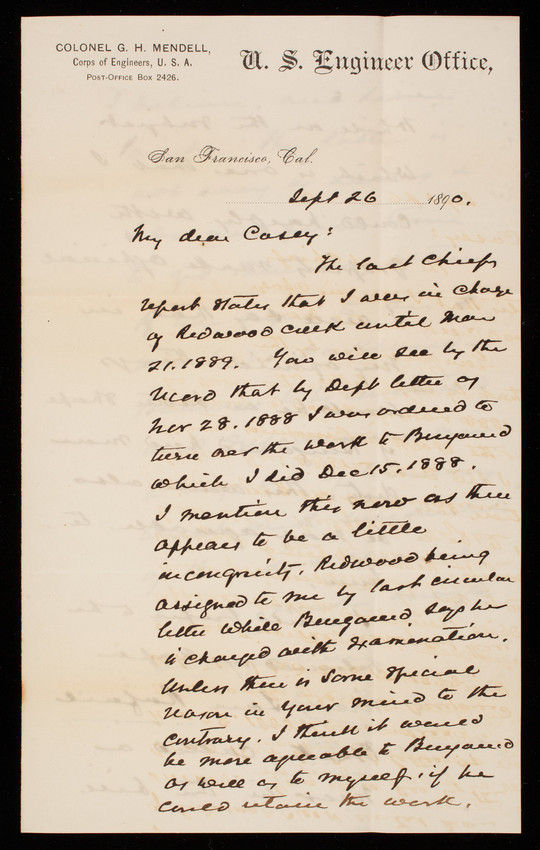 COLONEL G. H. MENDELL,
Corps of Engineers, U. S. A.
POST-OFFICE BOX 2426.
U. S. Engineer Office,
San Francisco, Cal.
Sept 26 1890.
My dear Casey:
The last Chiefs
report states that I was in charge
of Redwood Creek until Mar
21. 1889. You will see by the
record that by Dept letter of
Nov 28. 1888 I was ordered to
turn over the work to Benyaurd
which I did Dec 15. 1888.
I mention this now as there
appears to be a little
incongruity. Redwood being
assigned to me by last circular
letter while Benyaurd says he
is charged with examination.
Unless there is some special
reason in your mind to the
contrary. I think it would
be more agreeable to Benyaurd
as well as to myself. if he
could retain the work.